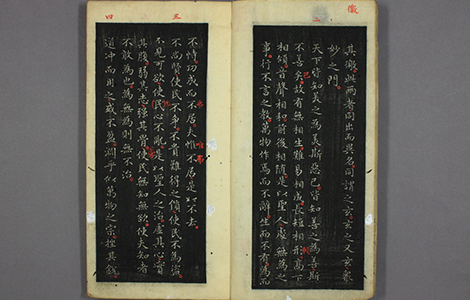 徼
二
其徼此兩者同出而異名同謂之玄玄之又玄衆
妙之門
天下皆知美之為美斯惡已皆知善之為善斯
不善矣故有無相生難易相成長短相形高下
相傾音聲相和前後相随是以聖人處無為之
事行不言之教萬物作焉而不辭生而不有為而
三
四
不恃功成而不居夫惟不居是以不去
不尚賢使民不爭不貴難得之貨使民不為盗
不見可欲使民心不亂是以聖人之治虛其心實
其腹弱其志強其骨使民無知無欲使夫知者
不敢為也為無為則無不治
道沖而用之或不盈淵乎似萬物之宗挫其銳